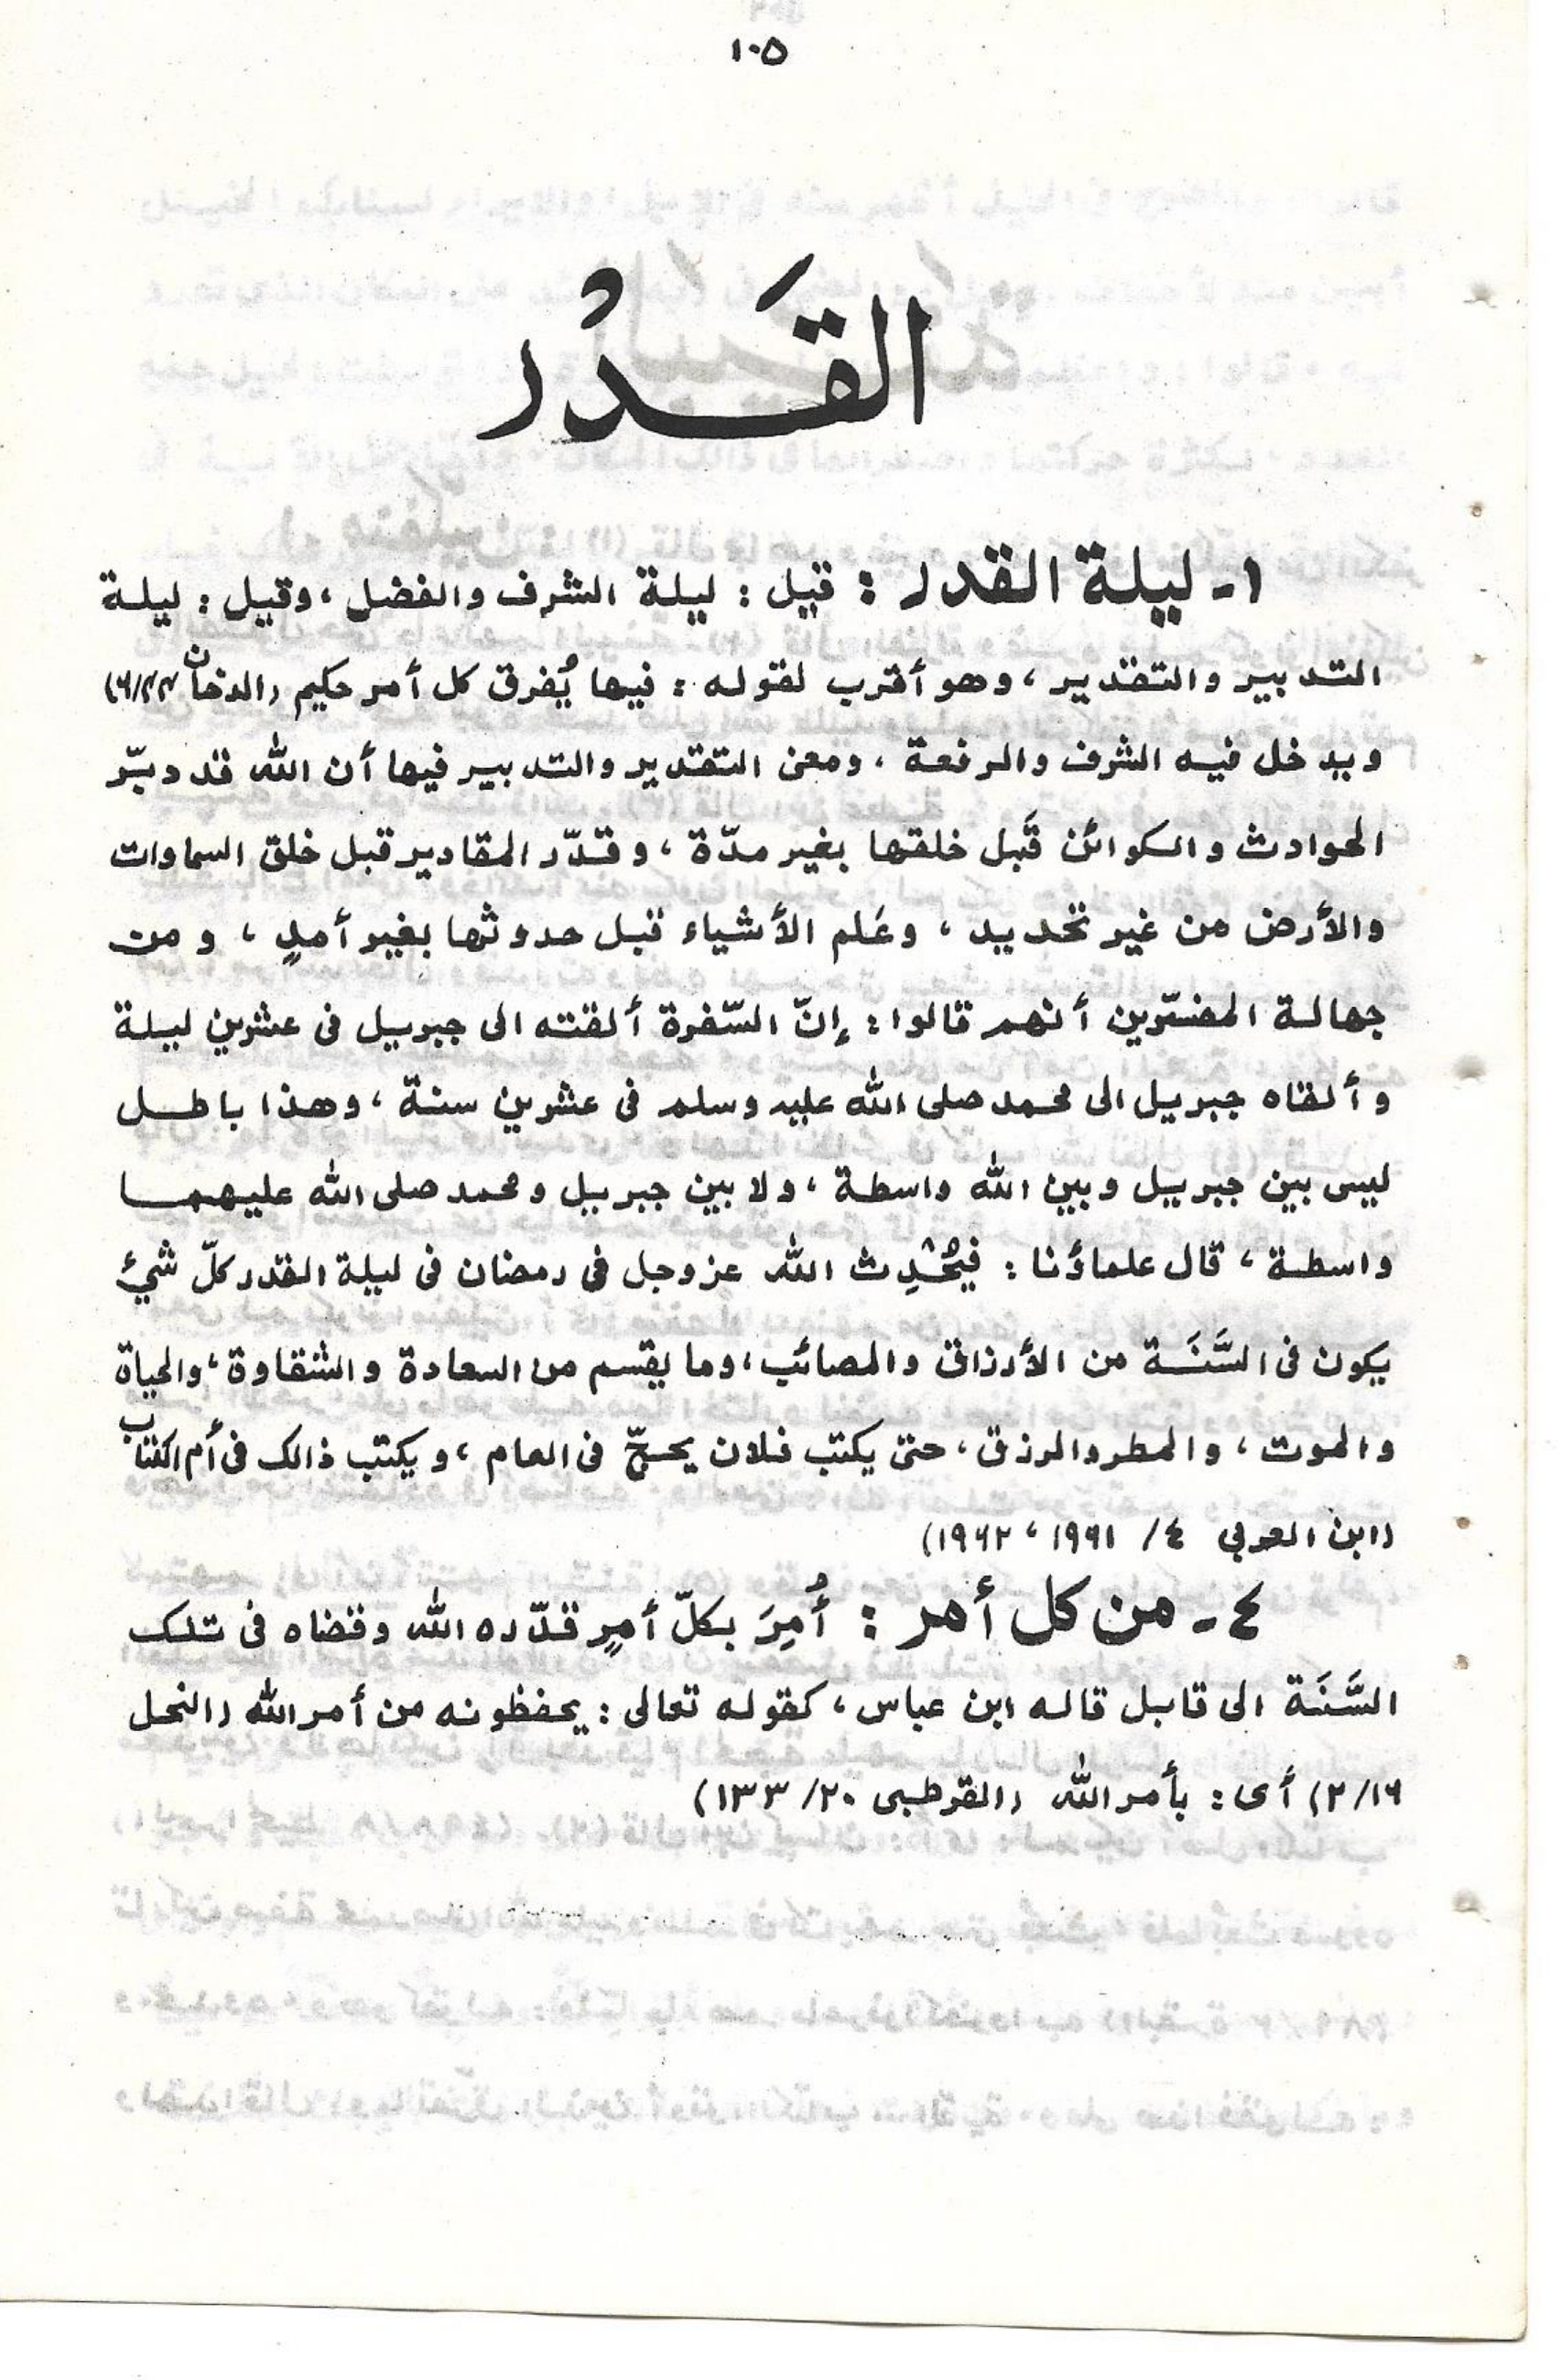 ١٠٥
القَدْر
١- ليلة القدر : قيل : ليلة الشرف والفضل ، وقيل : ليلة
التدبير والتقدير ، وهو أقرب لقوله : فيها يُفرق كل أمر حكيم (الدخان
ويدخل فيه الشرف والرفعة ، ومعنى التقدير والتدبير فيها أن الله قد دبّر
الحوادث والكوائن قَبل خلقها بغير مدّة ، وقدّر المقادير قبل خلق السماوات
والأرض من غير تحديد ، وعَلم الأشياء قبل حدوثها بغير أمدٍ ، ومن
جهالة المفسّرين أنهم قالوا : إنّ السّفرة ألقته الى جبريل فى عشرين ليلة
وألقاه جبريل الى محمد صلى الله عليه وسلم فى عشرين سنة ، وهذا باطل
ليس بين جبريل وبين الله واسطة ، ولا بين جبريل ومحمد صلى الله عليهما
واسطة ، قال علماؤنا : فيُحْدِث الله عز وجل فى رمضان فى ليلة القدر كلّ شيئ
يكون فى السَّنَة من الأرزاق والمصائب ، وما يقسم من السعادة والشقاوة ، والحياة
والموت ، والمطر والرزق ، حتى يكتب فلان يحجّ فى العام ، ويكتب ذالك فى أم الكتاب
(ابن العربي ٤/ ١٩٦١ ، ١٩٦٢)
٤- من كل أمر : أُمِرَ بكلّ أمرٍ قدّره الله وقضاه فى تلك
السَّنَة الى قابل قاله ابن عباس ، كقوله تعالى : يحفظونه من أمر الله (النحل
٢/١٦) أى : بأمر الله (القرطبى ٢٠/ ١٣٣)